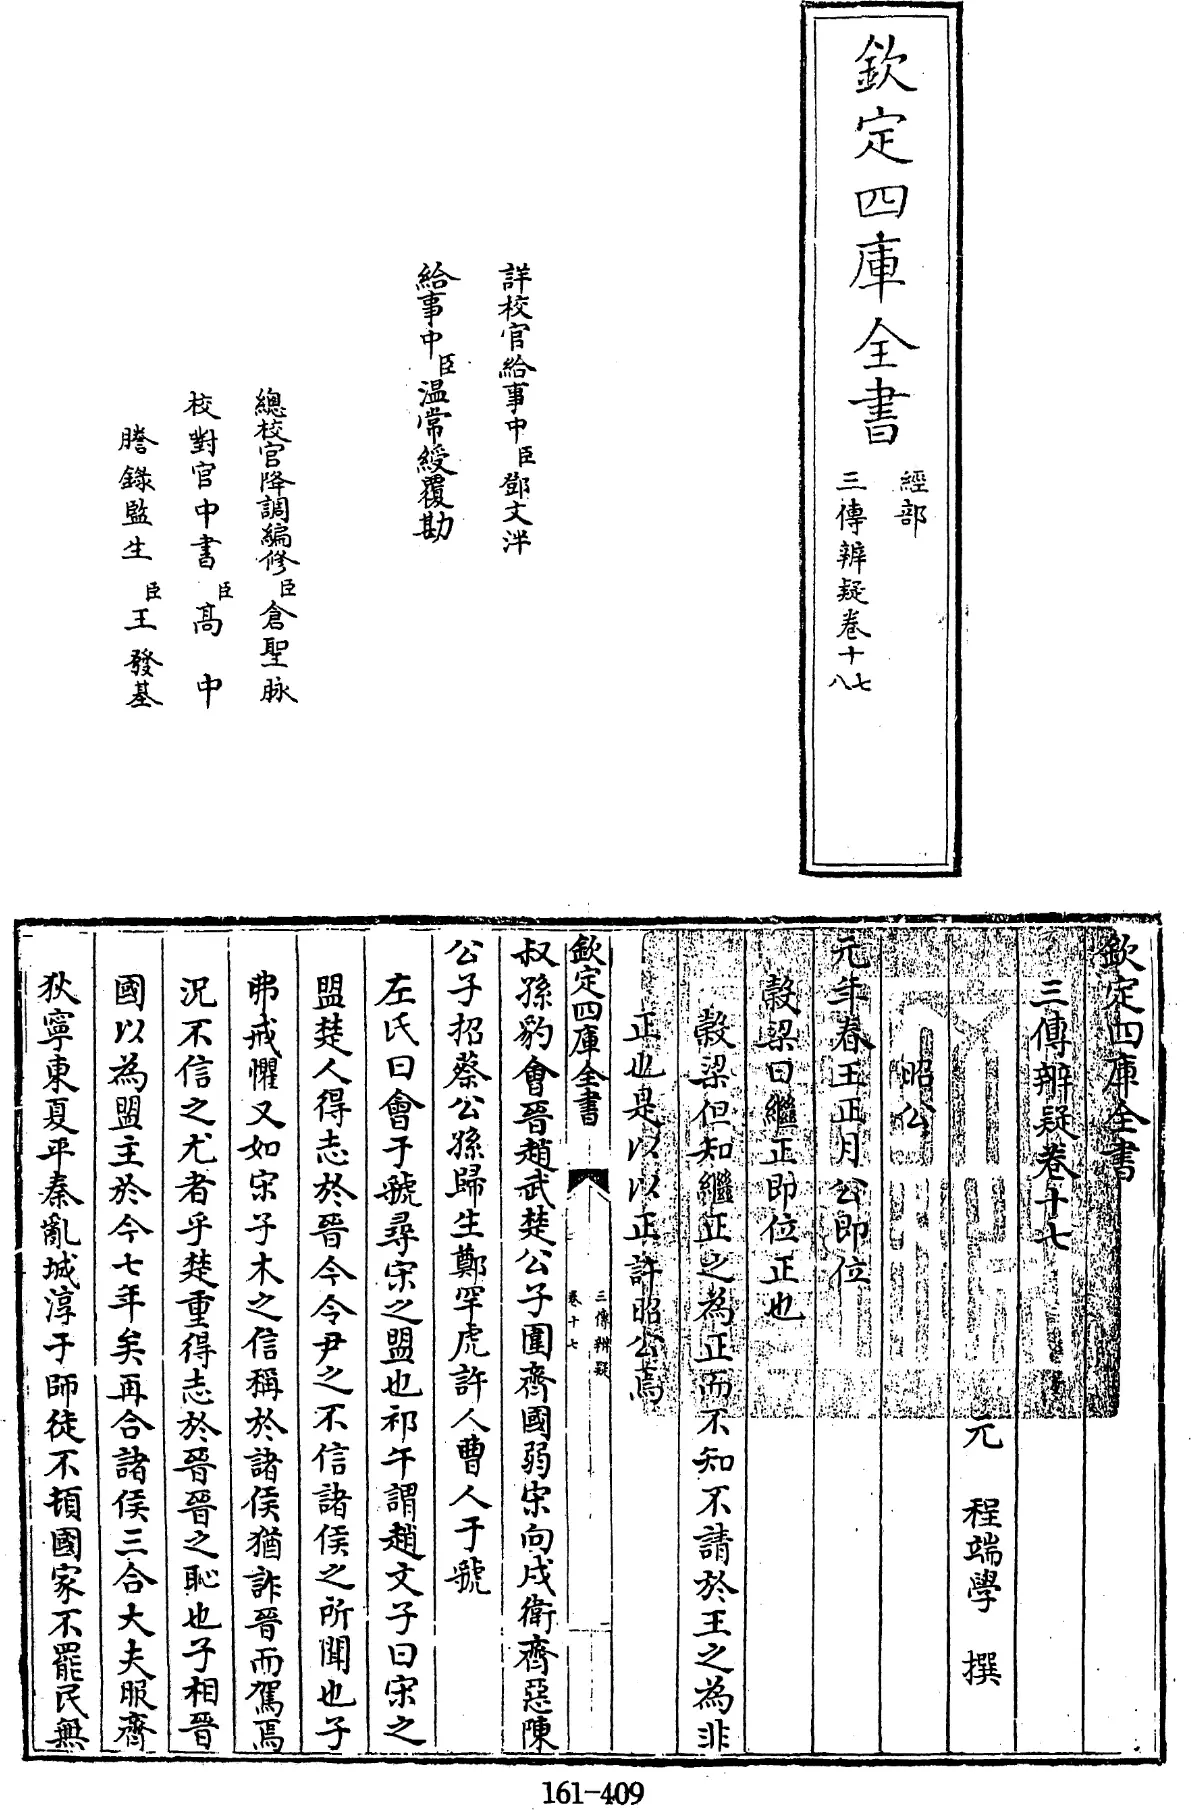 欽定四庫全書
經部
三傳辨疑卷十七
八
詳校官給事中臣鄧文泮
給事中臣温常綬覆勘
總校官降調編修臣倉聖脉
校對官中書臣髙中
謄錄監生臣王發基
欽定四庫全書
三傳辨疑卷十七
元 程端學 撰
昭公
元年春王正月公即位
穀梁曰繼正即位正也
穀梁但知繼正之為正而不知不請於王之為非
正也是以以正許昭公焉
欽定四庫全書
三傳辨疑
卷十七
二
叔孫豹會晉趙武楚公子圍齊國弱宋向戌衛齊惡陳
公子招蔡公孫歸生鄭罕虎許人曹人于虢
左氏曰會于虢尋宋之盟也祁午謂趙文子曰宋之
盟楚人得志於晉今令尹之不信諸侯之所聞也子
弗戒懼又如宋子木之信稱於諸侯猶詐晉而駕焉
況不信之尤者乎楚重得志於晉晉之恥也子相晉
國以為盟主於今七年矣再合諸侯三合大夫服齊
狄寧東夏平秦亂城淳于師徒不頓國家不罷民無
161-409